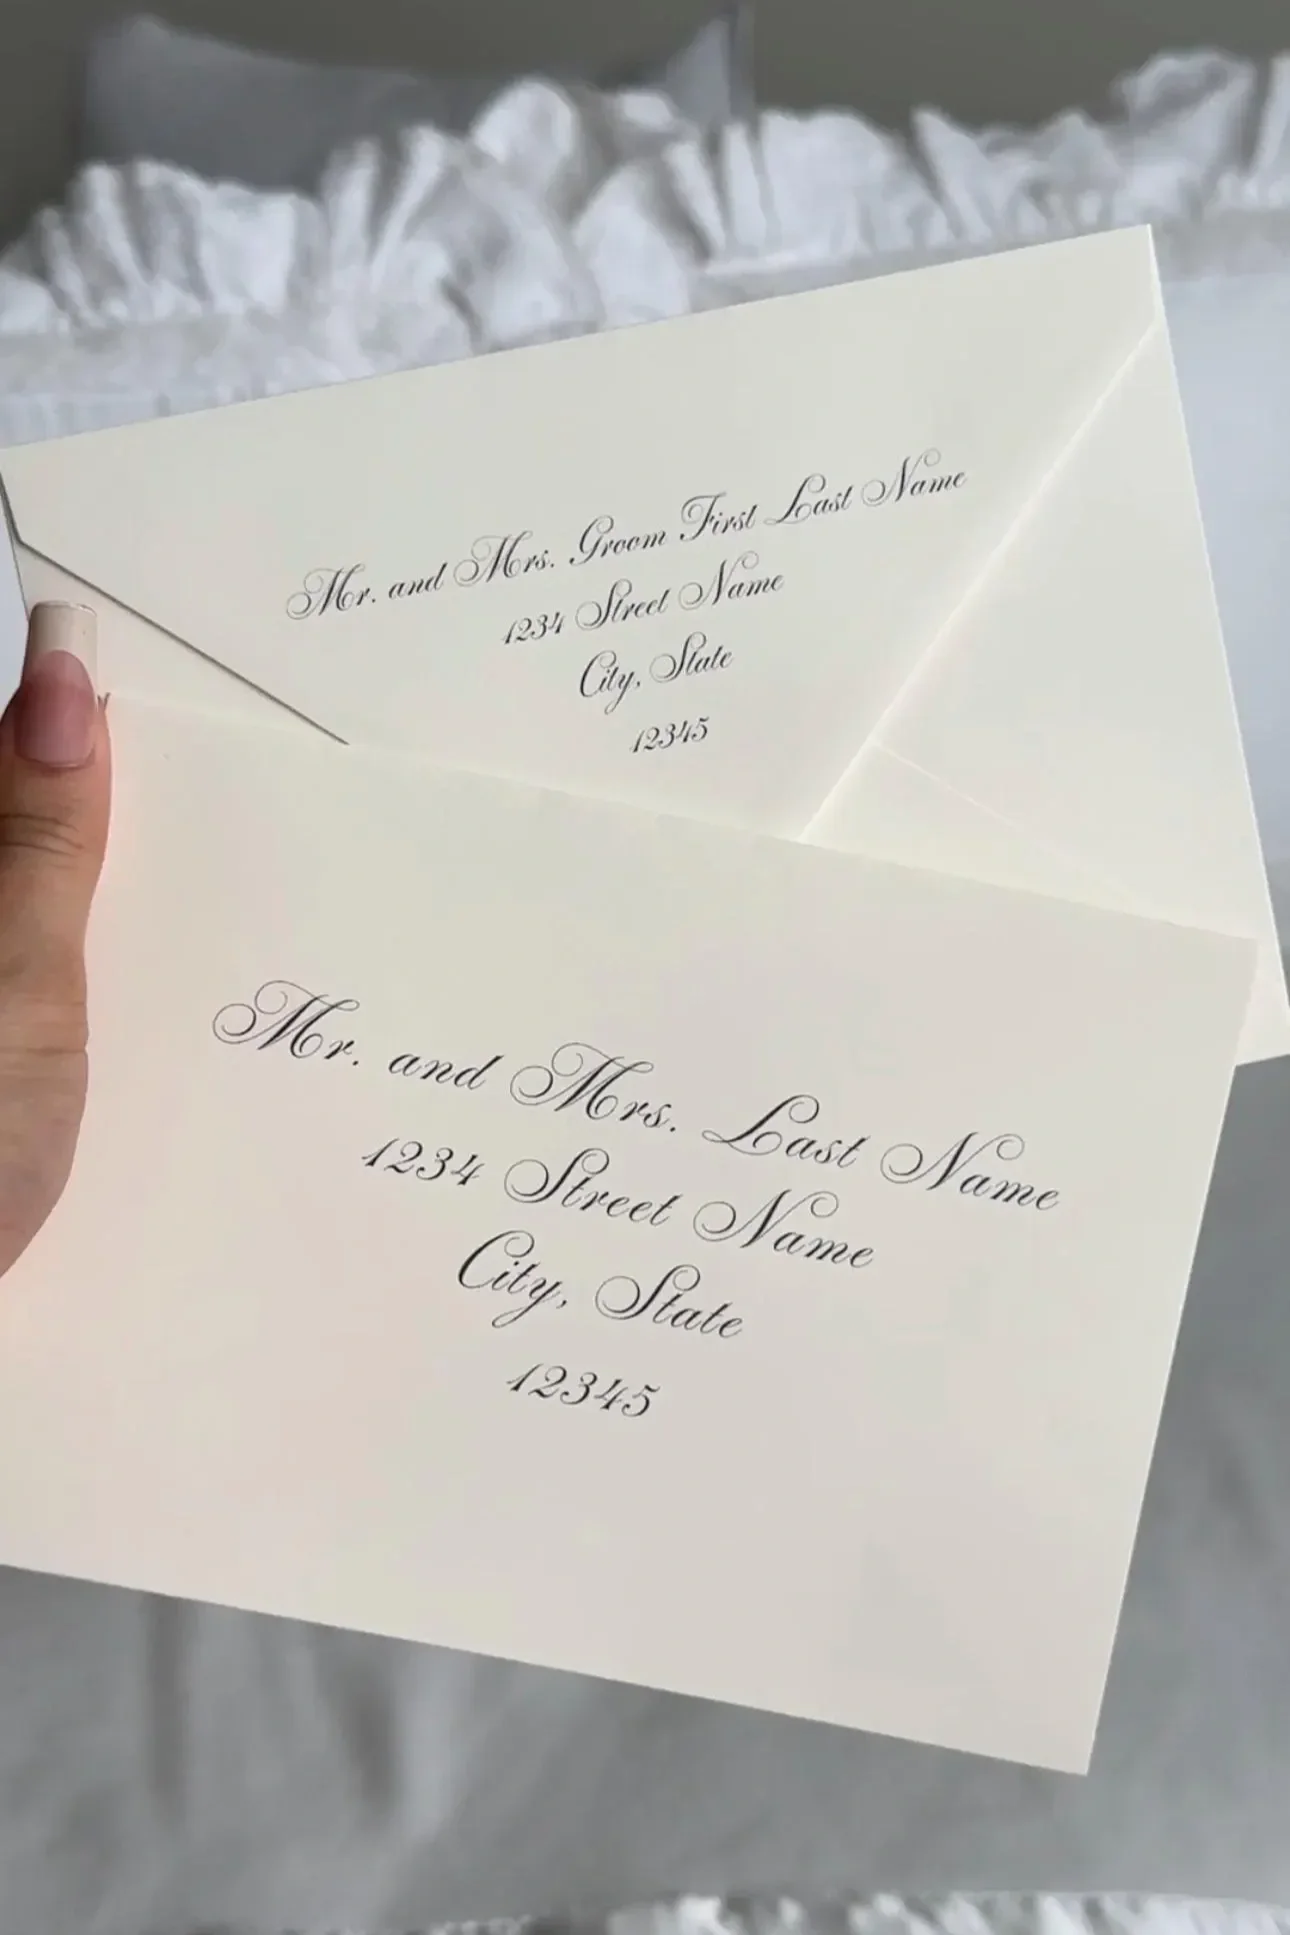 Mr. and Mrs. Groom First Last Name
1234 Street Name
City, State
12345
Mr. and Mrs. Last Name
1234 Street Name
City, State
12345